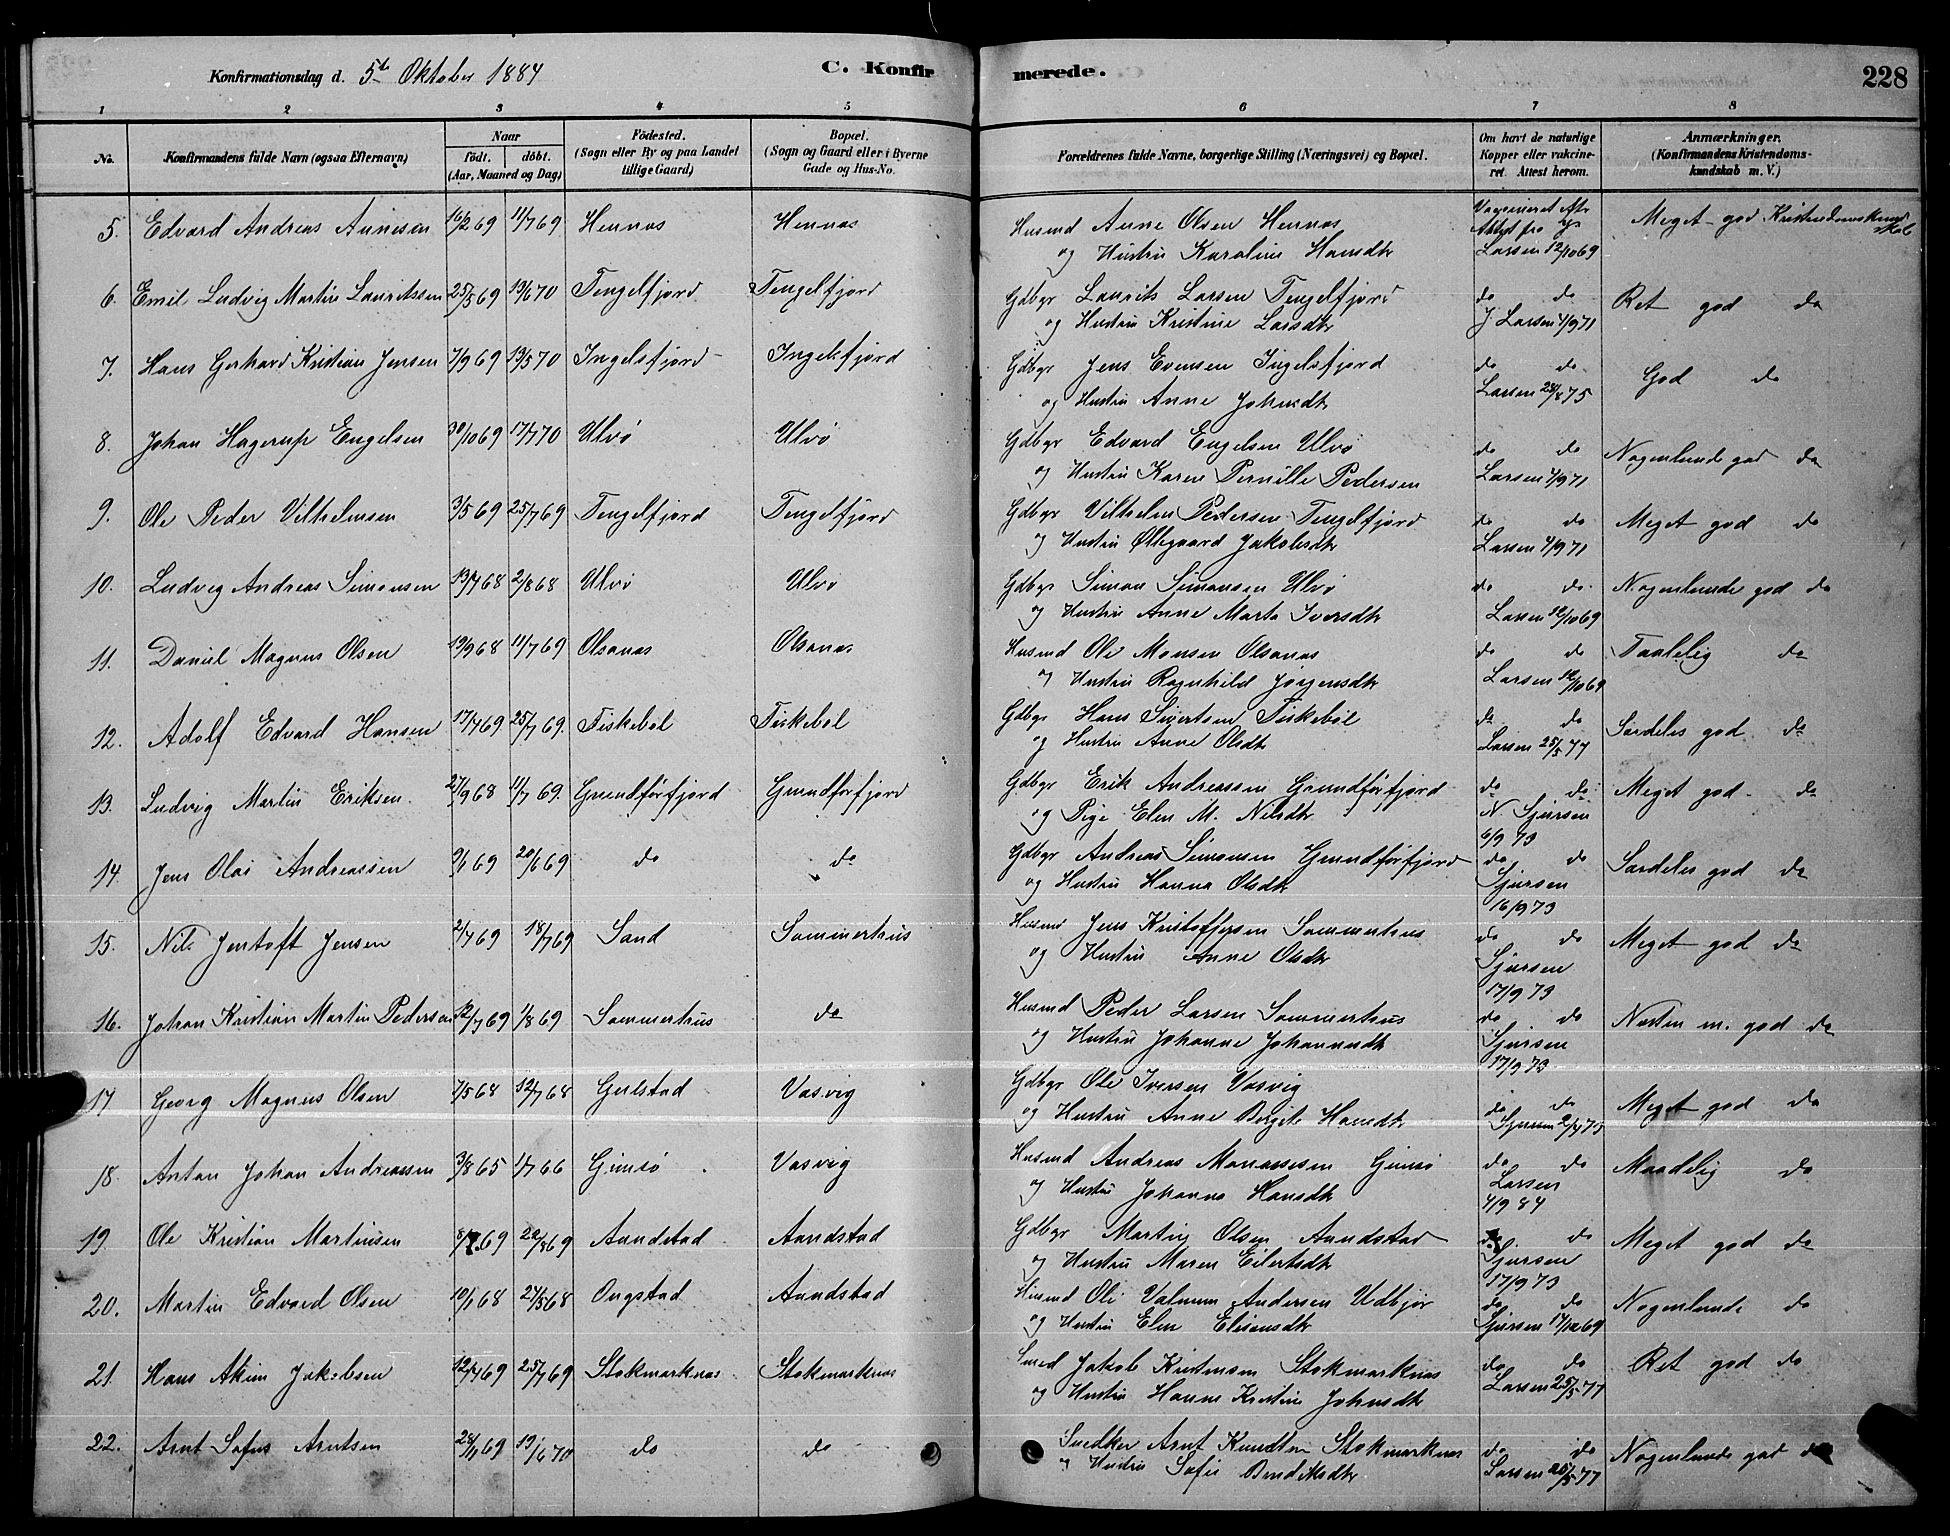 Konfirmationsdag d. 5te Oktober 1884
C. Konfirmerede.
228
1 2 3 4 5 6 7 8
No. Konfirmandens fulde Navn (ogsaa Efternavn) Naar födt. döbt. (Aar, Maaned og Dag) Födested. (Sogn eller By og paa Landet tillige Gaard) Bopæl. (Sogn og Gaard eller i Byerne Gade og Hus-No. Forældrenes fulde Navne, borgerlige Stilling (Næringsvei) og Bopæl. Om havt de naturlige Kopper eller vakcineret. Attest herom. Anmærkninger. (Konfirmandens Kristendomskundskab m. V.)
5. Edvard Andreas Annesen 16/2 69 11/7 69 Hennæs Hennæs Husmd Anne Olsen Hennæs Meget god Kristendomskundskab
og Hustru Karoline Hansdtr Larsen 12/10 69
6. Emil Ludvig Martin Lauritssen 25/5 69 13/6 70 Tengelfjord Tengelfjord Gdbgr Laurits Larsen Tengelfjord do do Ret god do
og Hustru Kristine Larsdtr J. Larsen 4/9 71
7. Hans Gerhard Kristian Jensen 7/9 69 13/5 70 Ingelsfjord Ingelsfjord Gdbgr Jens Evensen Ingelsfjord do do God do
og Hustru Anne Johnsdtr Larsen 28/8 75
8. Johan Hagerup Engelsen 30/10 69 17/7 70 Ulvö Ulvö Gdbgr Edvard Engelsen Ulvö do do Nogenlunde god do
og Hustru Karen Pernille Pedersen Larsen 4/9 71
9. Ole Peder Vilhelmsen 3/5 69 25/7 69 Tengelfjord Tengelfjord Gdbgr Vilhelm Pedersen Tengelfjord do do Meget god do
og Hustru Ollegaard Jakobsdtr Larsen 4/9 71
10. Ludvig Andreas Simonsen 13/4 68 2/8 68 Ulvö Ulvö Gdbgr Simon Simonsen Ulvö do do Nogenlunde god do
og Hustru Anne Marta Iversdtr Larsen 12/10 69
11. Daniel Magnus Olsen 19/9 68 11/7 69 Olsanæs Olsanæs Husmd Ole Monsen Olsanæs do do Taalelig do
og Hustru Ragnhild Jörgensdtr Larsen 12/10 69
12. Adolf Edvard Hansen 17/4 69 25/7 69. Fiskeböl Fiskeböl Gdbgr Hans Sivertsen Fiskeböl do do Særdeles god do
og Hustru Anne Olsdtr Larsen 25/5 77
13. Ludvig Martin Eriksen 27/9 68 11/7 69. Grundförfjord Grundförfjord Gdbgr Erik Andreassen Grundförfjord do do Meget god do
og Pige Elen M. Nilsdtr N. Sjursen 6/9 73
14. Jens Olai Andreassen 9/1 69 20/6 69 do do Gdbgr Andreas Simonsen Grundförfjord do do Særdeles god do
og Hustru Hanna Olsdtr Sjursen 16/9 73
15. Nils Jentoft Jensen 2/4 69 18/7 69 Sand Sommerhus Husmd Jens Kristoffersen Sommerhus do do Meget god do
og Hustru Anne Olsdtr Sjursen 17/9 73
16. Johan Kristian Martin Pedersen 12/7 69 1/8 69 Sommerhus do Husmd Peder Larsen Sommerhus do do Næsten m. god do
og Hustru Johanne Johannesdtr Sjursen 17/9 73
17 Georg Magnus Olsen 7/5 68 12/7 68 Gulstad Vasvig Gdbgr Ole Iversen Vasvig do do Meget god do
og Hustru Anne Bergite Hansdtr Sjursen 2/4 73
18. Anton Johan Andreassen 3/8 65 1/7 66 Gimsö Vasvig Husmd Andreas Manassesen Gimsö do do Maadelig do
og Hustru Johanna Hansdtr Larsen 4/9 84
19. Ole Kristian Martinsen 8/7 69 22/8 69 Aandstad Aandstad Gdbgr Martin Olsen Aandstad do do Meget god do
og Hustru Maren Eilertsdtr Sjursen 17/9 73
20. Martin Edvard Olsen 10/1 68 24/5 68 Ongstad Aandstad Husmd Ole Andersen Udbjör do do Nogenlunde do
og Hustru Elen Sjursen 17/10 69
21. Hans Akim Jakobsen 12/4 69 25/7 69 Stokmarknæs Stokmarknæs Smed Jakob Kristensen Stokmarknæs do do Ret god do
og Hustru Hanne Kristine Johnsdtr Larsen 25/5 77
22. Arnt Sofus Arntsen 28/11 69 19/6 70 do do Snedker Arnt Knudsen Stokmarknæs do do Nogenlunde god do
og Hustru Sofie Larsen 25/5 77